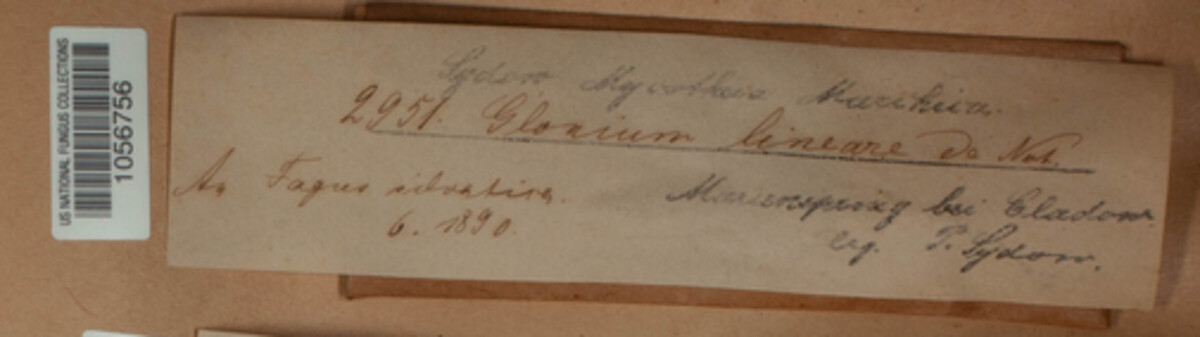 US NATIONAL FUNGUS COLLECTIONS
1056756
Sydow Mycotheca Marchica.
2951. Glonium lineare de Not.
An Fagus silvatica.
6. 1890.
Marienspring bei Cladow.
leg. P. Sydow.